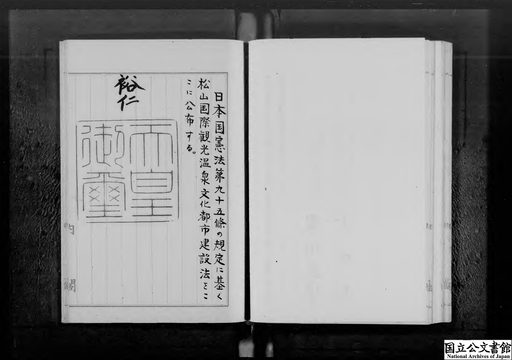 日本国憲法第九十五條の規定に基く
松山国際観光温泉文化都市建設法をこ
こに公布する。
裕仁
天皇
御璽
国立公文書館
National Archives of Japan